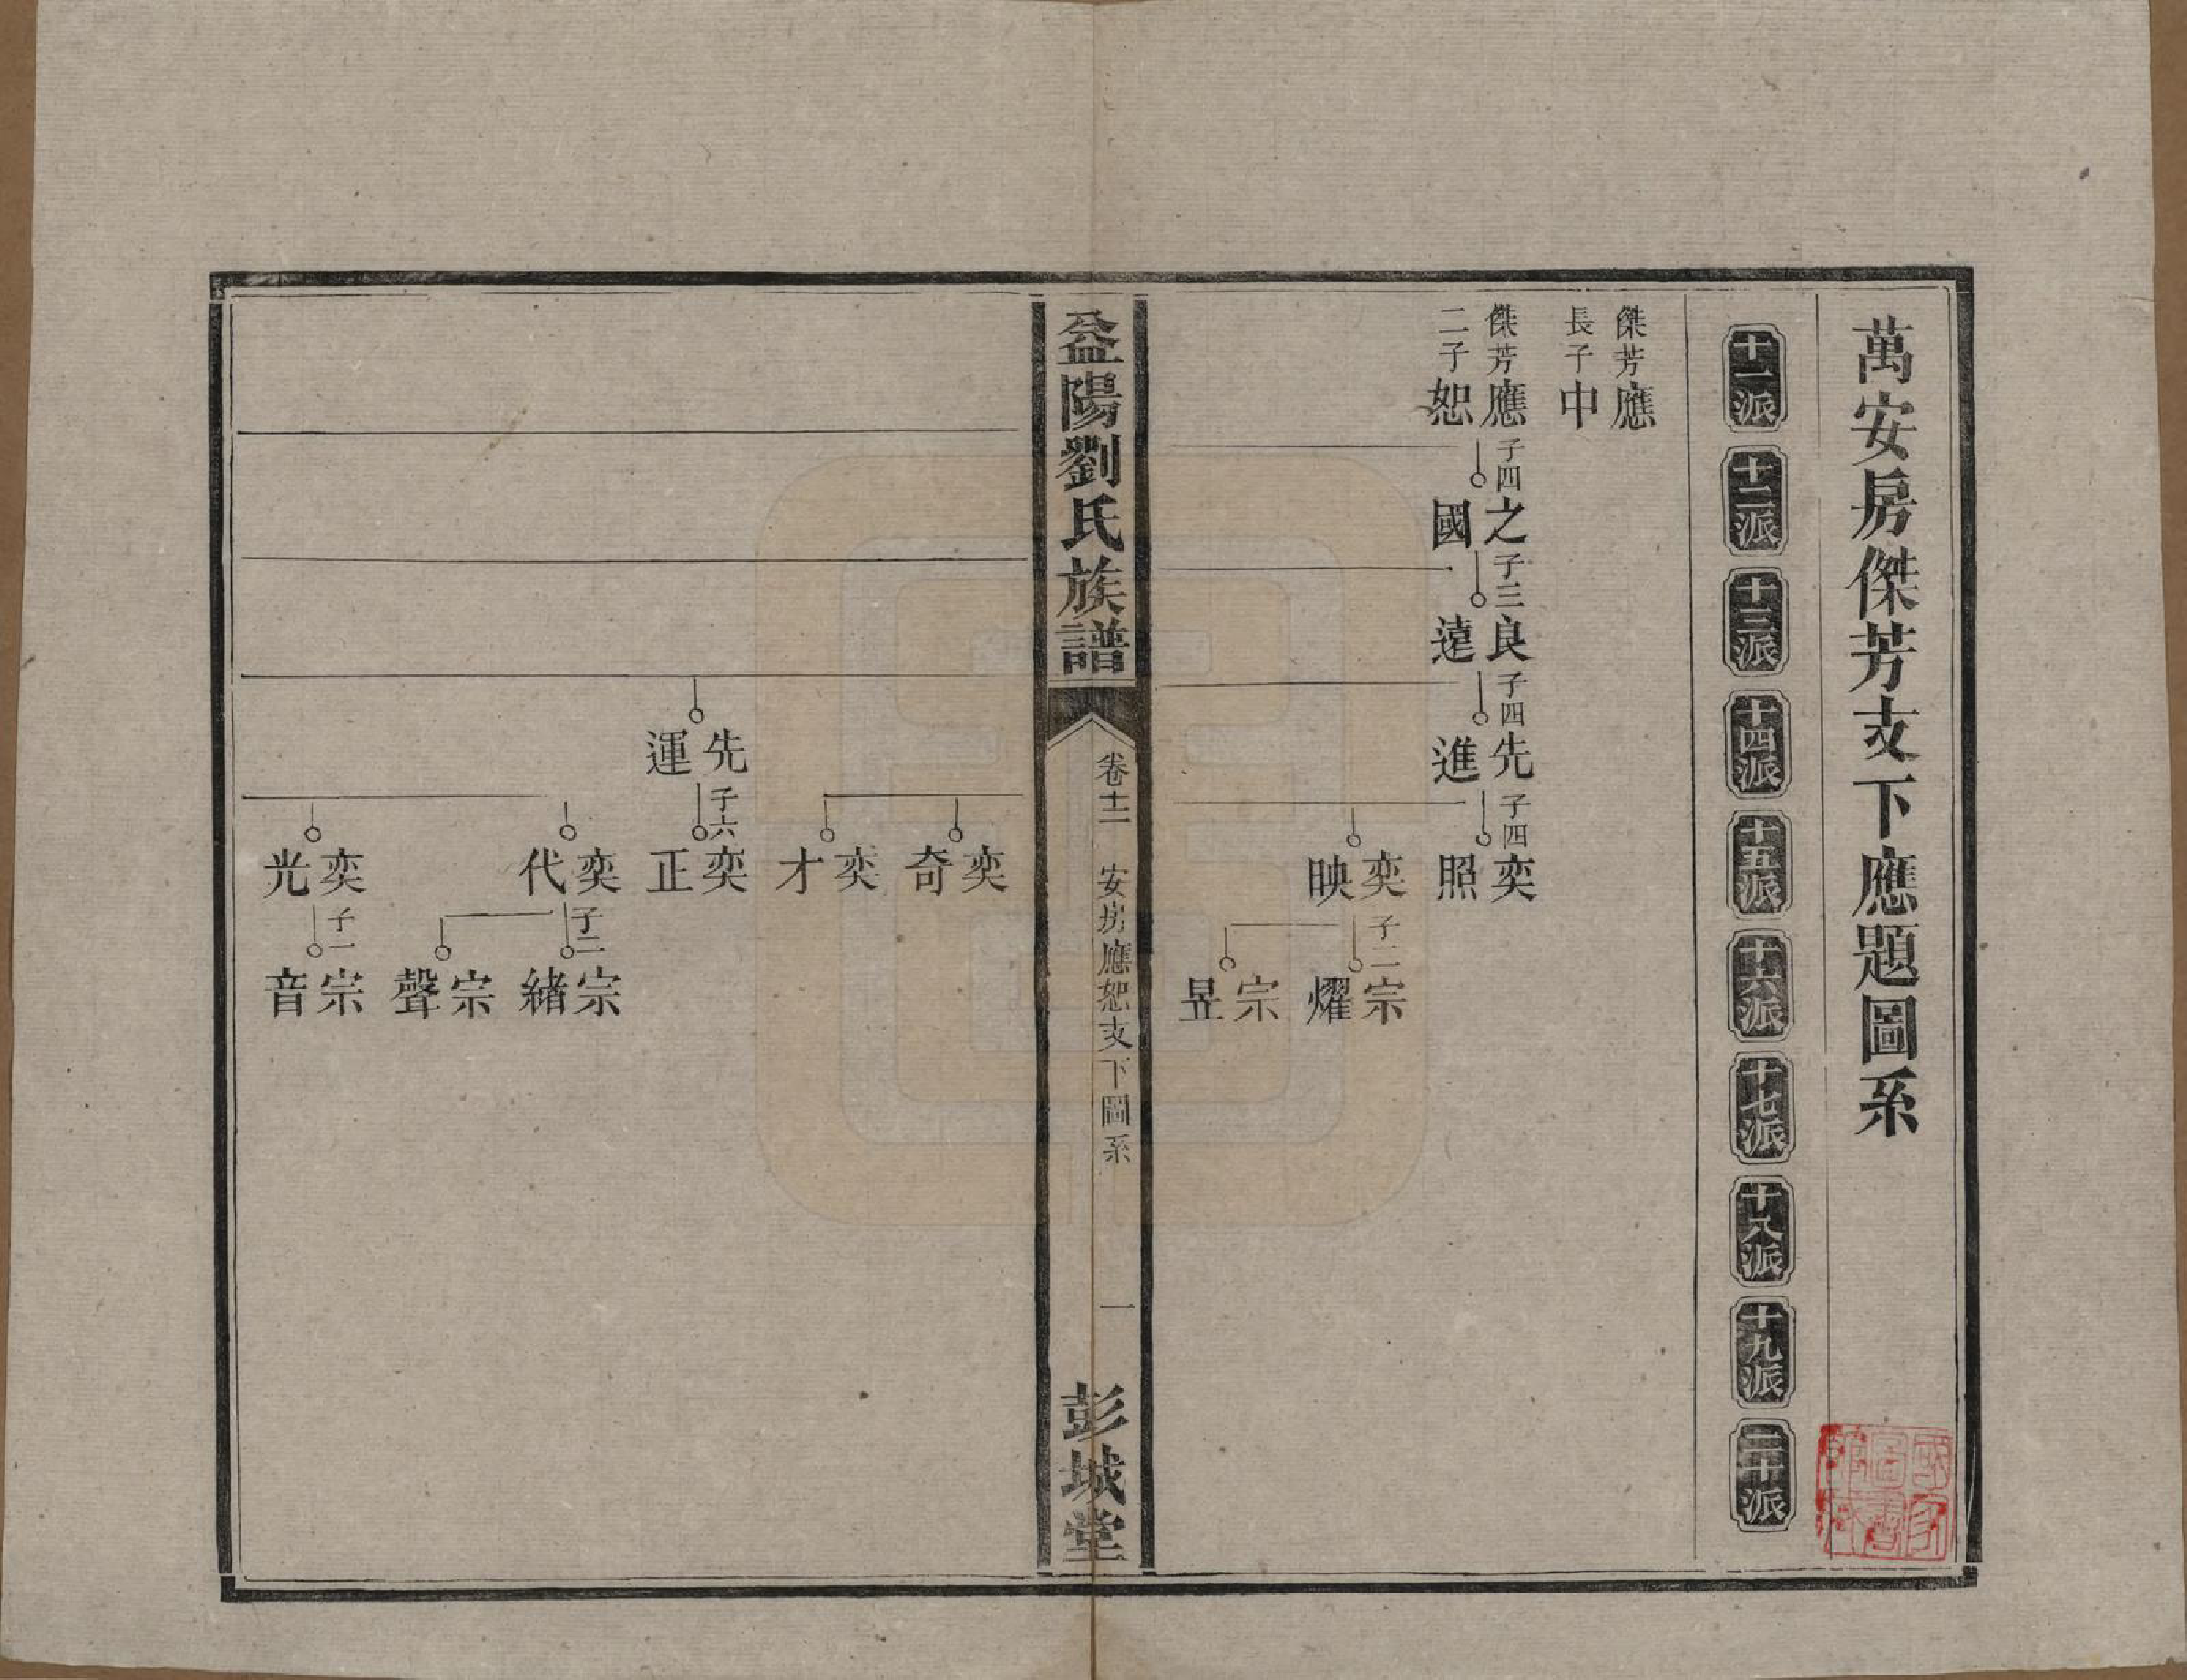 萬安房傑芳支下應題圖系
十一派
十二派
十三派
十四派
十五派
十六派
十七派
十八派
十九派
二十派
傑芳長子
應中
傑芳二子
應恕
子四
之國
子三
良遠
子四
先進
子四
奕照
奕映
子二
宗燿
宗昱
益陽劉氏族譜
卷十二
安房應恕支下圖系
一
彭城堂
奕奇
奕才
先運
子六
奕正
奕代
子二
宗緒
宗聲
奕光
子一
宗音
國家圖書館藏